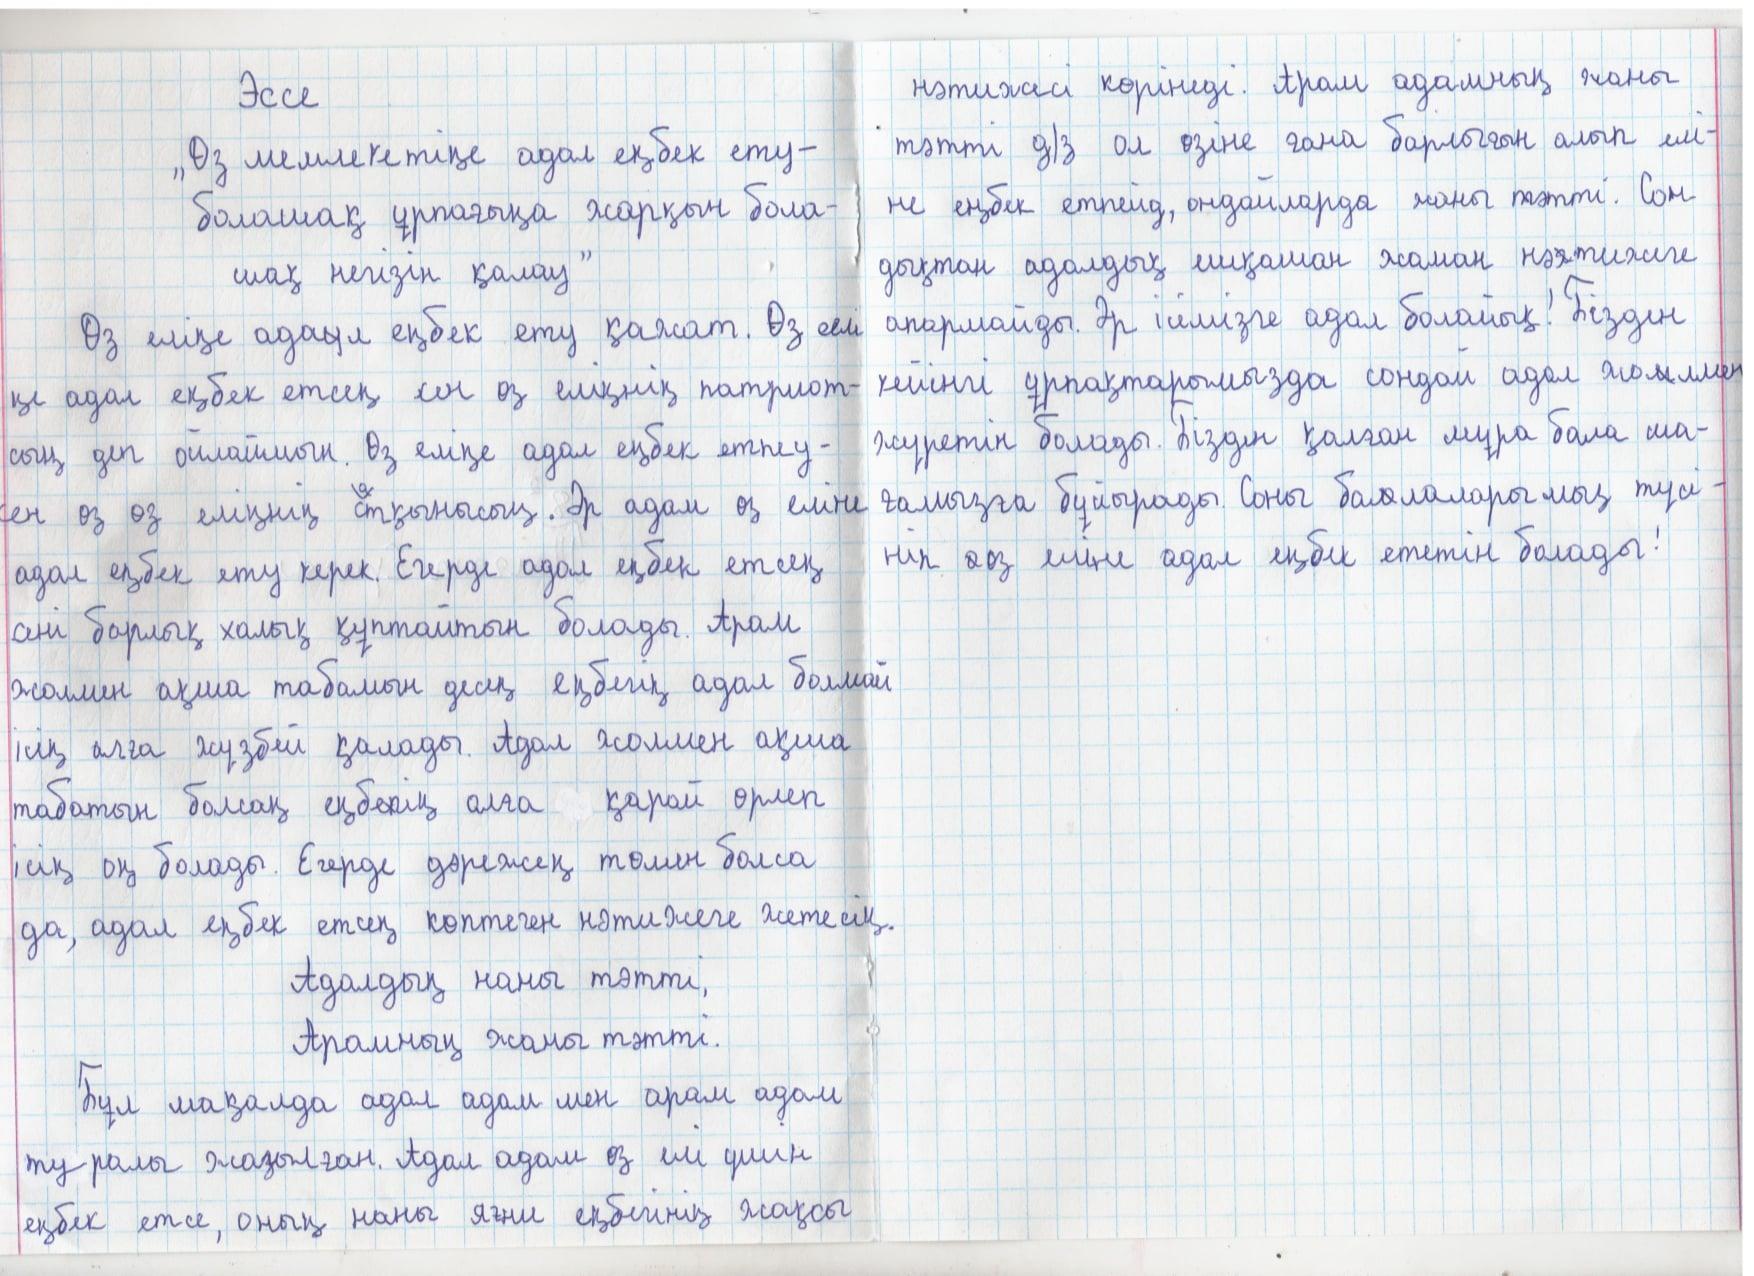 Эссе
„Өз мемлекетіңе адал еңбек ету-
болашақ ұрпағыңа жарқын бола-
шақ негізін қалау”
Өз еліңе адал еңбек ету қажат. Өз елі
ңе адал еңбек етсең сен өз еліңнің патриот-
сың деп ойлаймын. Өз еліңе адал еңбек етпеу-
сен өз өз еліңнің сатқынысың. Әр адам өз еліне
адал еңбек ету керек. Егерде адал еңбек етсең
сені барлық халық құптайтын болады. Арам
жолмен ақша табамын десең еңбегің адал болмай
ісің алға жүзбей қалады. Адал жолмен ақша
табатын болсаң еңбекің алға қарай өрлеп
ісің оң болады. Егерде дәрежең төмен болса
да, адал еңбек етсең көптеген нәтижеге жетесің.
Адалдың наны тәтті,
Арамның жаны тәтті.
Бұл мақалда адал адам мен арам адам
туралы жазылған. Адал адам өз елі үшін
еңбек етсе, оның наны яғни еңбегінің жақсы
нәтижесі көрінеді. Арам адамның жаны
тәтті д/з ол өзіне ғана барлығын алып елі-
не еңбек етпейд, ондайларда жаны тәтті. Сон
дықтан адалдық ешқашан жаман нәтижеге
апармайды. Әр ісімізге адал болайық! Бізден
кейінгі ұрпақтарымызда сондай адал жолмен
жүретін болады. Бізден қалған мұра бала ша-
ғамызға бұйырады. Соны балалаларымыз түсі-
ніп өз еліне адал еңбек ететін болады!